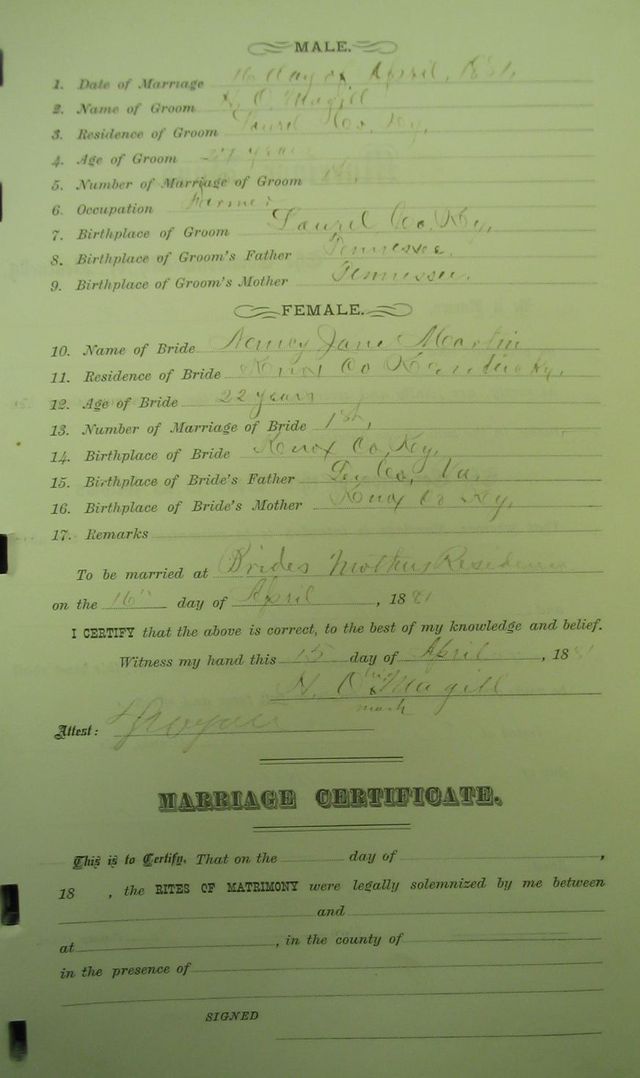 MALE.
1. Date of Marriage 16 day of April, 1881
2. Name of Groom H. O. Magill
3. Residence of Groom Laurel Co, Ky,
4. Age of Groom 27 years
5. Number of Marriage of Groom
6. Occupation Farmer
7. Birthplace of Groom Laurel Co, Ky,
8. Birthplace of Groom's Father Tennessee.
9. Birthplace of Groom's Mother Tennessee.
FEMALE.
10. Name of Bride Nancy Jane Martin
11. Residence of Bride Knox Co Kentucky.
12. Age of Bride 22 years
13. Number of Marriage of Bride 1st,
14. Birthplace of Bride Knox Co, Ky,
15. Birthplace of Bride's Father Lee Co, Va.
16. Birthplace of Bride's Mother Knox Co Ky,
17. Remarks
To be married at Brides Mothers Residence
on the 16th day of April, 1881
I CERTIFY that the above is correct, to the best of my knowledge and belief.
Witness my hand this 15 day of April, 1881
H. O. his x Magill
mark
Attest:
MARRIAGE CERTIFICATE.
This is to Certify, That on the day of ,
18 , the RITES OF MATRIMONY were legally solemnized by me between
and
at , in the county of
in the presence of
SIGNED